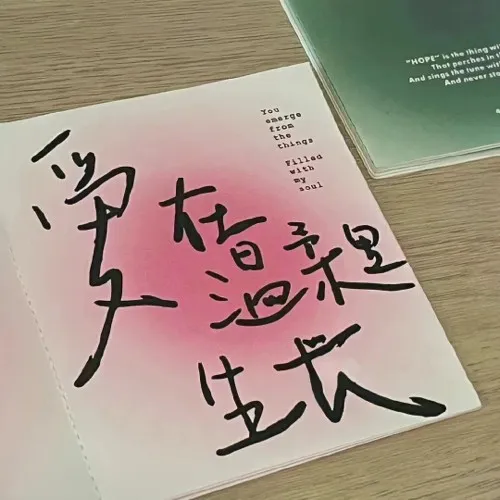 You
emerge
from
the
things
Filled
with
my
soul
爱
在温柔里
生长
"HOPE" is the thing wi
That perches in th
And sings the tune wit
And never s